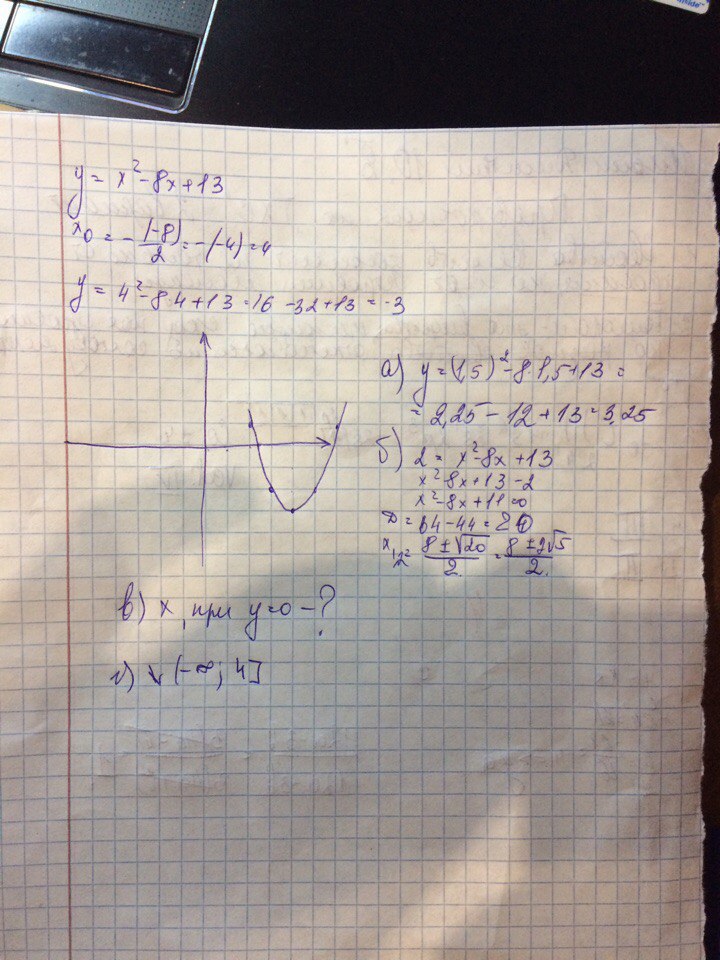 y = x² - 8x + 13
x₀ = - (-8)/2 = -(-4) = 4
y = 4² - 8·4 + 13 = 16 - 32 + 13 = -3
а) y = (1,5)² - 8·1,5 + 13 =
= 2,25 - 12 + 13 = 3,25
б) 2 = x² - 8x + 13
x² - 8x + 13 - 2
x² - 8x + 11 = 0
D = 64 - 44 = 20
x₁,₂ = (8 ± √20)/2 = (8 ± 2√5)/2.
в) x, при y = 0 - ?
г) ↘ (-∞; 4]